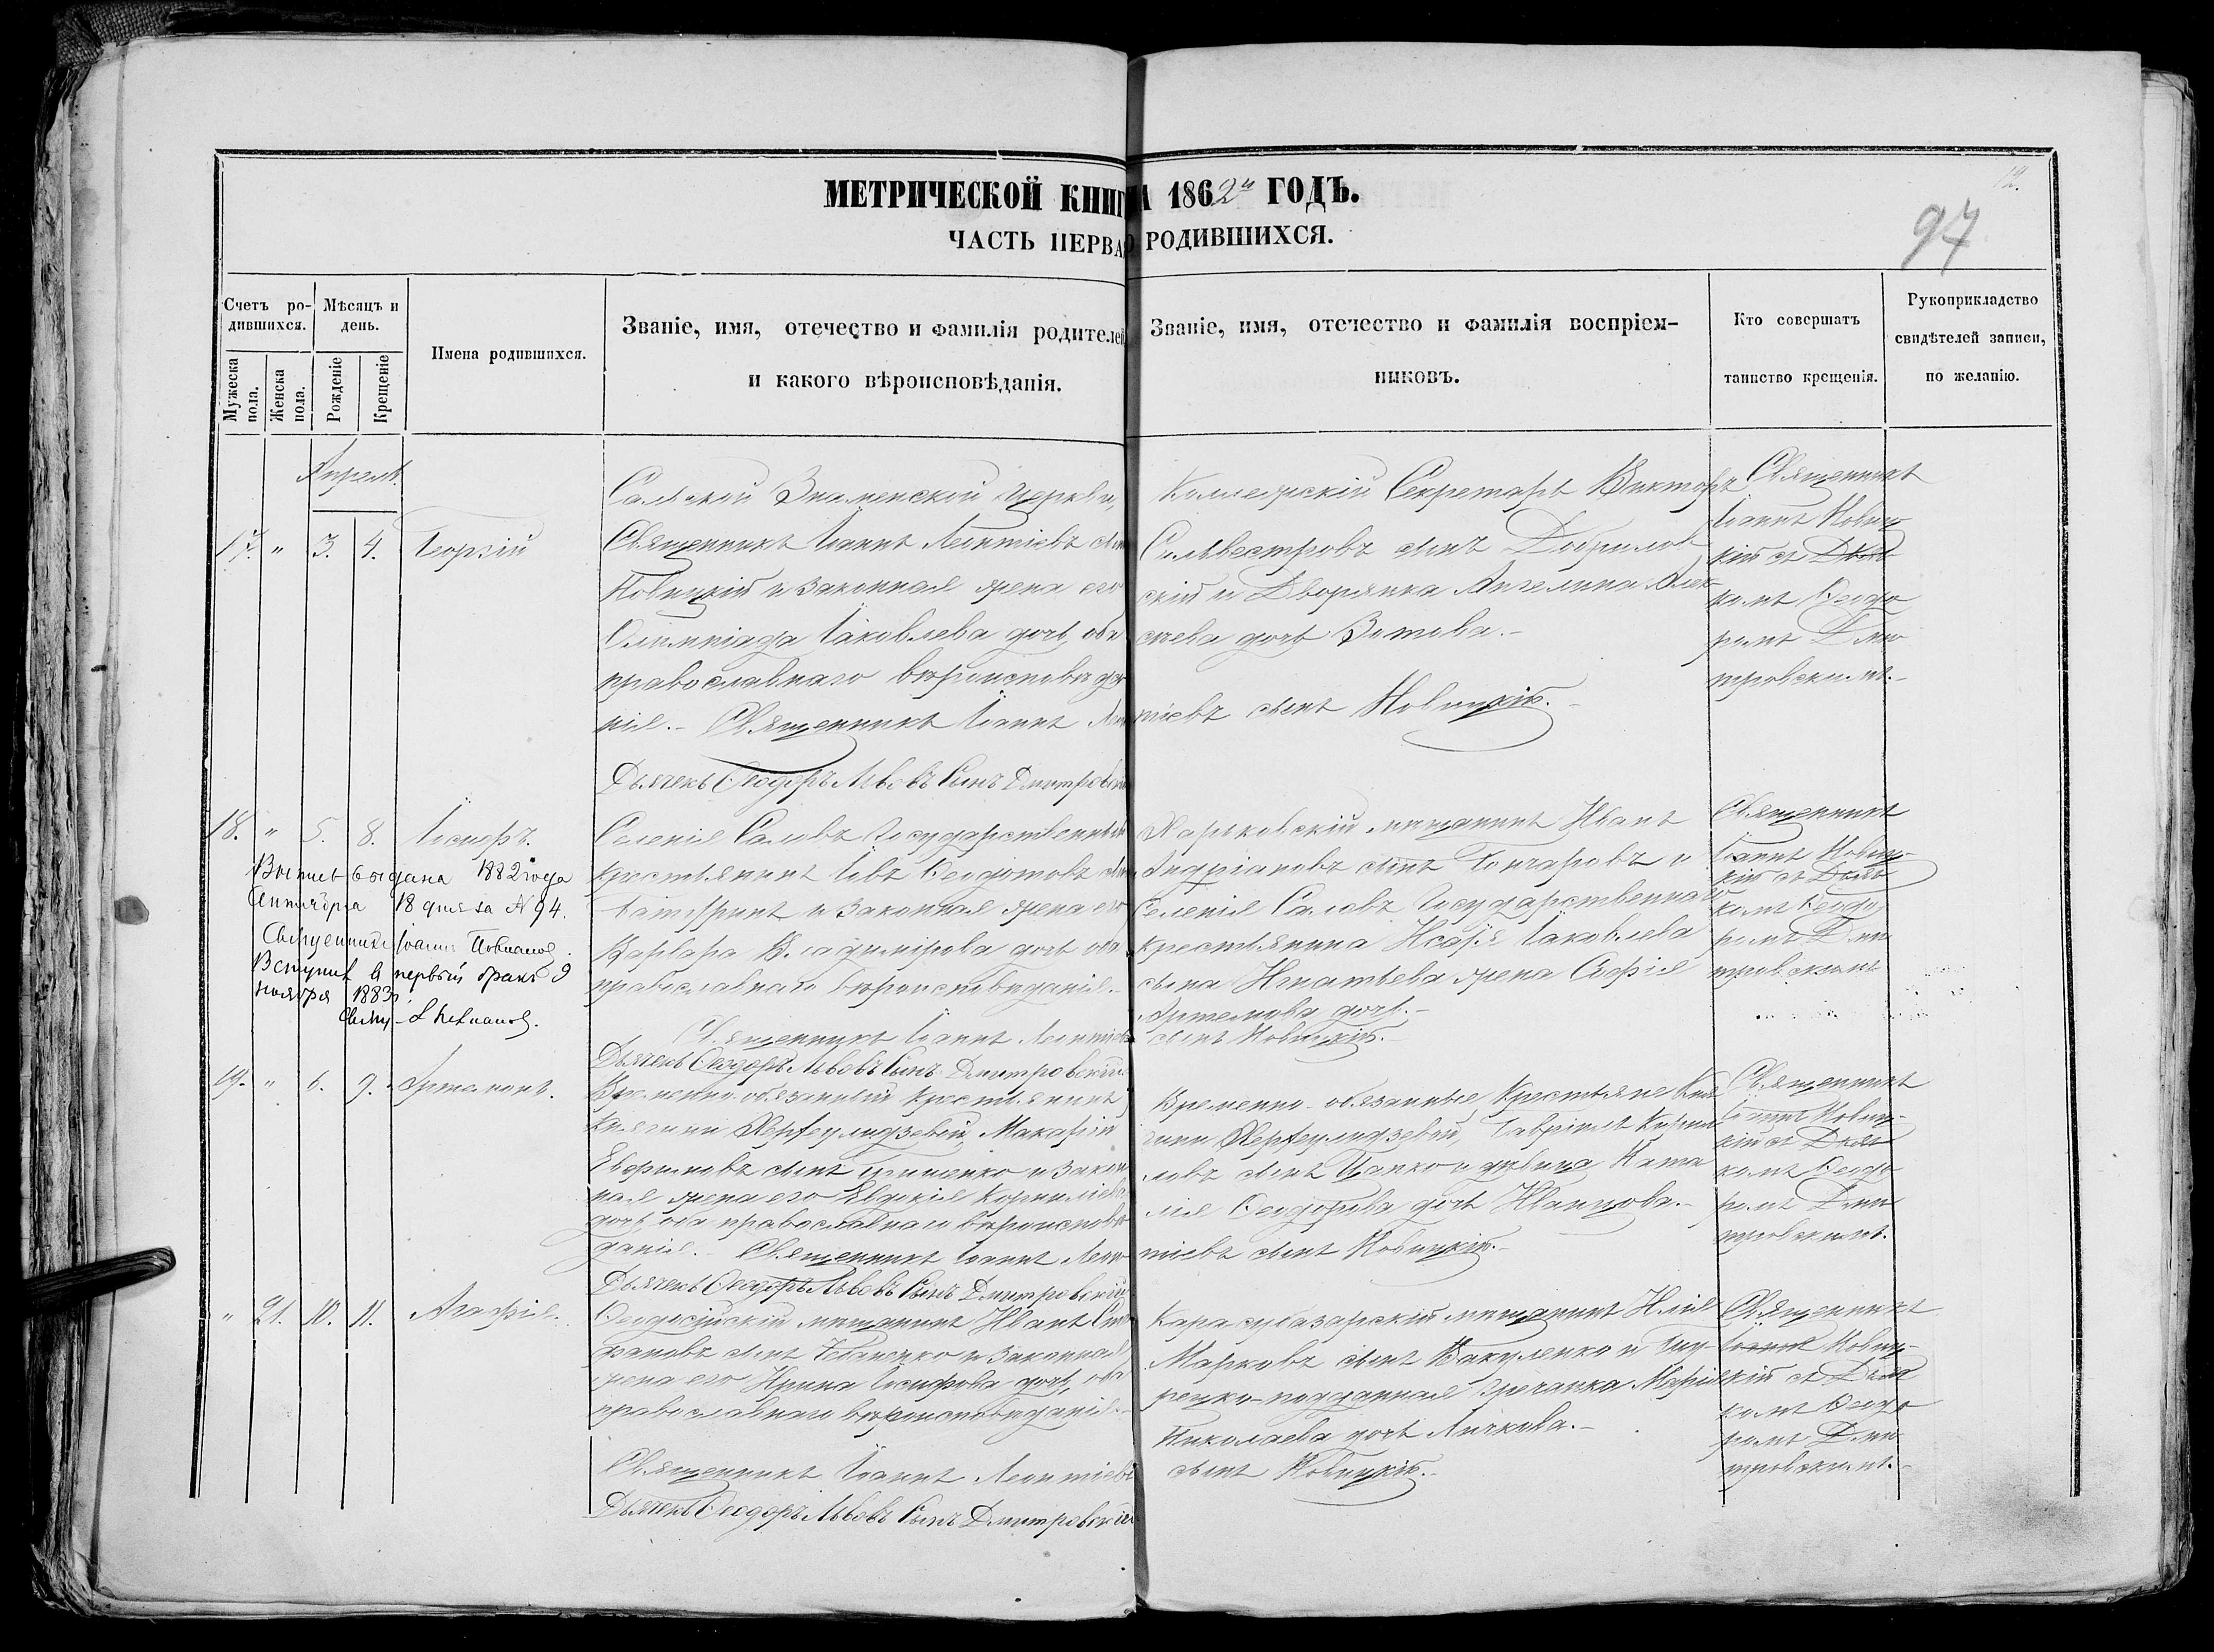 МЕТРИЧЕСКОЙ КНИГ А 1862го ГОДЪ.
ЧАСТЬ ПЕРВА О РОДИВШИХСЯ.
12.
97
Счетъ ро-
дившихся.
Мужеска
пола.
Женска
пола.
Мѣсяцъ и
день.
Рожденіе
Крещеніе
Имена родившихся.
Званіе, имя, отечество и фамилія родителей
и какого вѣроисповѣданія.
Званіе, имя, отечество и фамилія воспріем-
никовъ.
Кто совершатъ
таинство крещенія.
Рукоприкладство
свидѣтелей записи,
по желанію.
Апрель.
17. " 3. 4. Георгій
Знаменской церкви,
Священникъ Іоаннъ Леонтіевъ сынъ
Новицкій и законная жена его
Олимпіада Іаковлева дочь, оба
православнаго вѣроисповѣда
нія.- Священникъ Іоаннъ Леон
Дьячекъ Ѳеодоръ Львовъ Сынъ Дмитровскій
Коллежскій Секретарь Викторъ
Сильвестровъ сынъ
скій и Дворянка Ангелина Алек-
сѣева дочь Зотова.-
тіевъ сынъ Новицкій.-
Священникъ
Іоаннъ Новиц-
кій съ Дьяч-
комъ Ѳеодо
ромъ Дми
тровскимъ.-
18. " 5. 8. Іосифъ.
выдана 1882 года
Сентября 18 дня за N 94.
Священникъ Іоаннъ
Вступилъ въ первый бракъ 9
ноября 1883 г.
Селенія Саловъ Государственный
крестьянинъ Іовъ Ѳедотовъ сынъ
и законная жена его
Варвара Владимірова дочь оба
православнаго вѣроисповѣданія.-
Священникъ Іоаннъ Леонтіевъ
Дьячекъ Ѳеодоръ Львовъ Сынъ Дмитровскій
Харьковскій мѣщанинъ Иванъ
Андріановъ сынъ Гончаровъ и
Селенія Саловъ Государственнаго
крестьянина Исаія Іаковлева
сына Игнатьева жена Софія
Артемова дочь.-
сынъ Новицкій.-
Священникъ
Іоаннъ Новиц-
кій съ Дьяч-
комъ Ѳеодо
ромъ Дми
тровскимъ
19. " 6. 9. Артамонъ.
Временно-обязанный крестьянинъ
Княгини Херхеулидзевой, Макарій
Евфимовъ сынъ Гриценко и закон
ная жена его Евдокія Корниліева
дочь, оба православнаго вѣроисповѣ
данія.- Священникъ Іоаннъ Леон
Дьячекъ Ѳеодоръ Львовъ Сынъ Дмитровскій
Временно-обязанные Крестьяне Кня
гини Херхеулидзевой, Гавріилъ Кирил
ловъ сынъ Цапко и дѣвица Ната
лія Ѳеодорова дочь Иванцова.-
тіевъ сынъ Новицкій.-
Священникъ
Іоаннъ Новиц-
кій съ Дьяч
комъ Ѳеодо
ромъ Дми
тровскимъ.
" 21. 10. 11. Агафія.
Ѳеодосійскій мѣщанинъ Иванъ Сте
фановъ сынъ и законная
жена его Ирина Іосифова дочь, оба
православнаго вѣроисповѣданія.-
Священникъ Іоаннъ Леонтіевъ
Дьячекъ Ѳеодоръ Львовъ Сынъ Дмитровскій
Карасубазарскій мѣщанинъ Илія
Марковъ сынъ Вакуленко и Ту-
рецко-подданная гречанка Марія
Николаева дочь
сынъ Новицкій.-
Священникъ
Іоаннъ Новиц-
кій съ Дьяч
комъ Ѳеодо
ромъ Дми
тровскимъ.-